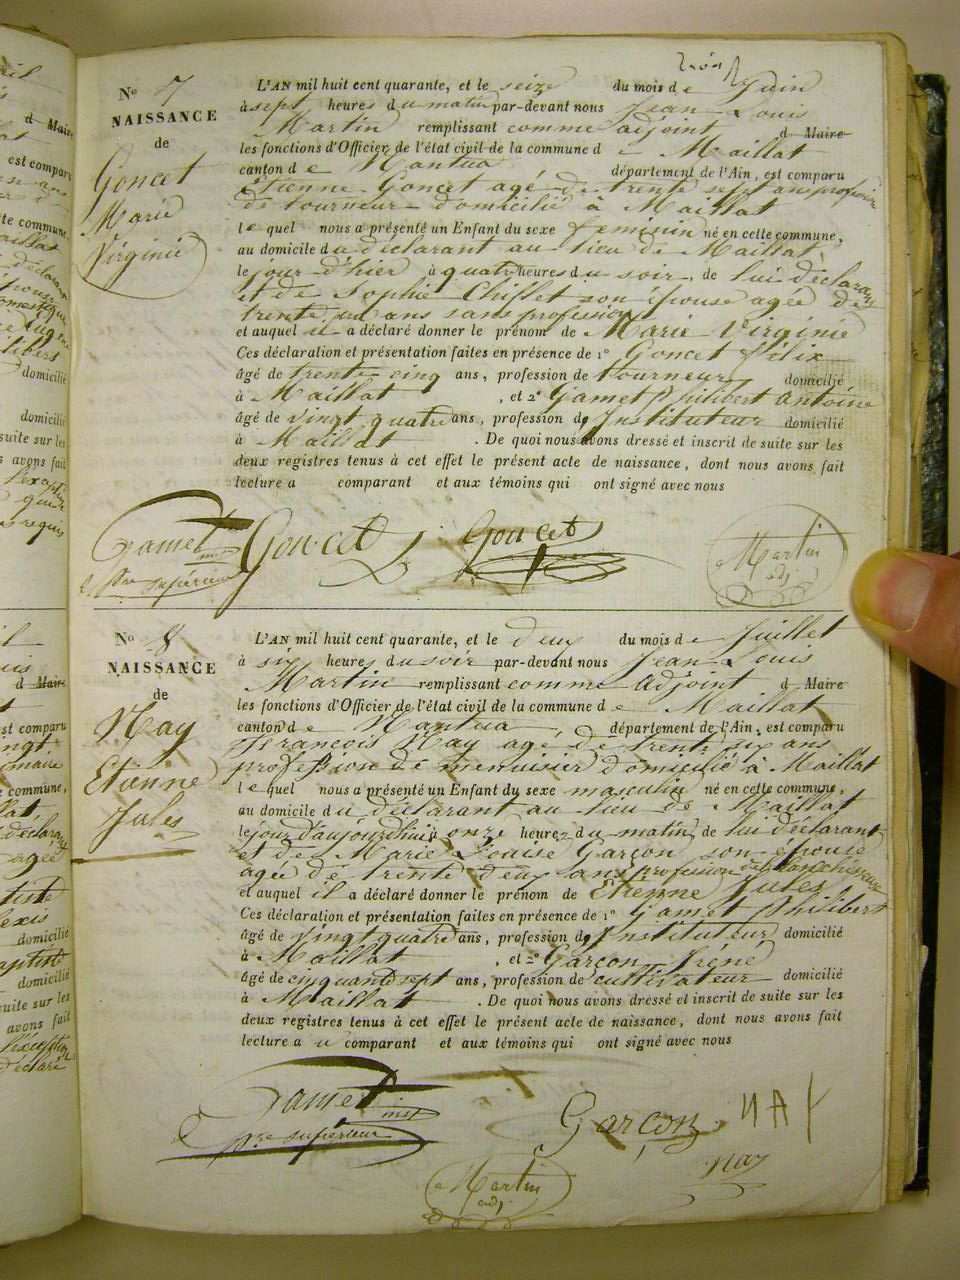 N° 7
NAISSANCE
de
Goncet
Marie
Virginie
L'AN mil huit cent quarante, et le seize du mois de Juin
à sept heures du matin par-devant nous Jean Louis
Martin remplissant comme adjoint d Maire
les fonctions d'Officier de l'état civil de la commune d e Maillat
canton d e Nantua département de l'Ain, est comparu
Etienne Goncet agé de trente sept ans profession
de tourneur domicilié à Maillat
le quel nous a présenté un Enfant du sexe feminin né en cette commune,
au domicile du déclarant au lieu de Maillat,
le jour d'hier à quatre heures du soir, de lui déclarant
et de Sophie Chifflet son épouse agée de
trente un ans sans profession
et auquel il a déclaré donner le prénom de Marie Virginie
Ces déclaration et présentation faites en présence de 1° Goncet Félix
âgé de trente cinq ans, profession de tourneur domicilié
à Maillat, et 2° Gamet Philibert Antoine
âgé de vingt quatre ans, profession d' Instituteur domicilié
à Maillat. De quoi nous avons dressé et inscrit de suite sur les
deux registres tenus à cet effet le présent acte de naissance, dont nous avons fait
lecture a comparant et aux témoins qui ont signé avec nous
Gamet Goncet Goncet
inst
pre supérieur
Martin
adj
N° 8
NAISSANCE
de
Nay
Etienne
Jules
L'AN mil huit cent quarante, et le deux du mois d e Juillet
à six heures du soir par-devant nous Jean Louis
Martin remplissant comme Adjoint d Maire
les fonctions d'Officier de l'état civil de la commune d e Maillat
canton d e Nantua, département de l'Ain, est comparu
François Nay agé de trente six ans
profession de menuisier domicilié à Maillat
le quel nous a présenté un Enfant du sexe masculin né en cette commune,
au domicile du déclarant au lieu de Maillat
le jour d'aujourd'hui à onze heures du matin, de lui déclarant
et de Marie Louise Garçon son épouse
agée de trente deux ans profession
et auquel il a déclaré donner le prénom de Etienne Jules
Ces déclaration et présentation faites en présence de 1° Gamet Philibert
âgé de vingt quatre ans, profession d' Instituteur domicilié
à Maillat, et 2° Garçon Iréné
âgé de cinquante sept ans, profession de cultivateur domicilié
à Maillat. De quoi nous avons dressé et inscrit de suite sur les
deux registres tenus à cet effet le présent acte de naissance, dont nous avons fait
lecture a u comparant et aux témoins qui ont signé avec nous
Gamet
inst
pre supérieur
Garçon NAY
nay
Martin
adj